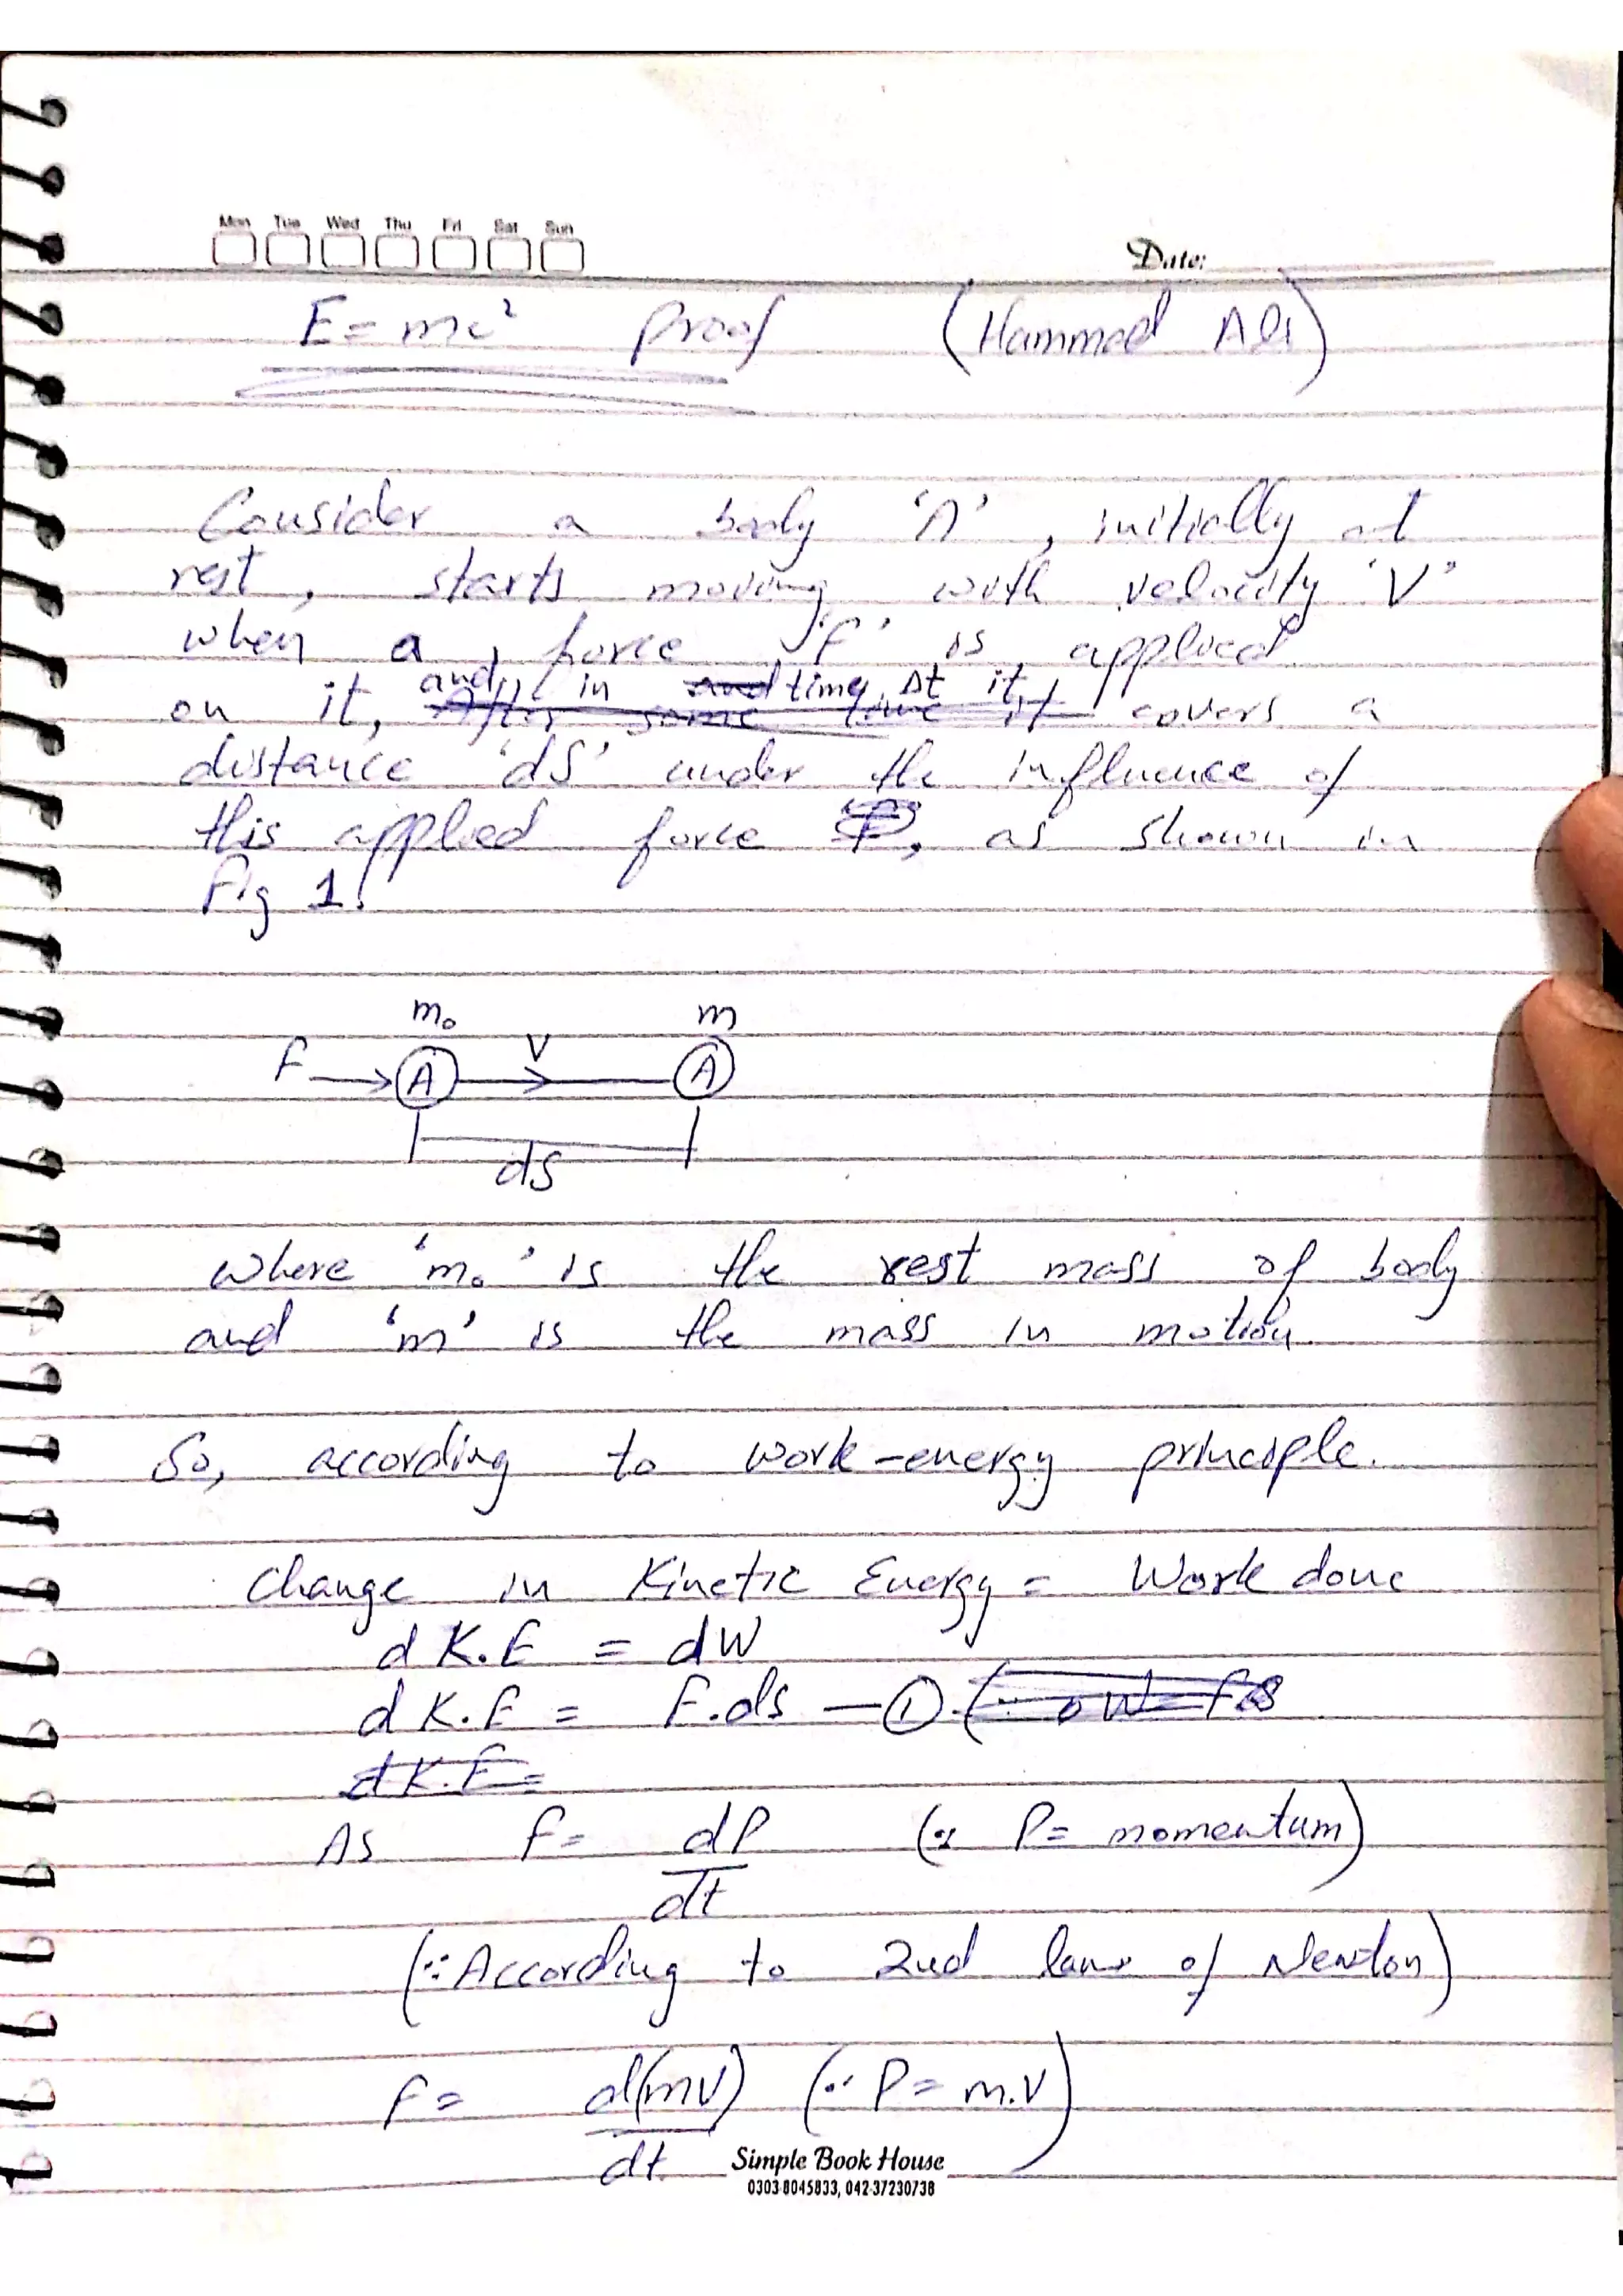 Mon Tue Wed Thu Fri Sat Sun
Date:
E = mc² Proof (Hammad Ali)
Consider a body 'A', initially at
rest, starts moving with velocity 'V'
when a force 'F' is applied
and in and time Δt it
on it, After some time it covers a
distance 'dS' under the influence of
this applied force 'F', as shown in
Fig 1.
m₀ m
F V
A A
dS
where 'm₀' is the rest mass of body
and 'm' is the mass in motion.
So, according to work-energy principle.
Change in Kinetic Energy = Work done
d K.E = dW
d K.E = F.ds — ① (∵ dW = Fds
d K.E =
As F = dP/dt (∵ P = momentum)
(∵ According to 2nd law of Newton)
F = d(mV)/dt (∵ P = m.V)
Simple Book House
0303-8045833, 042-37230738